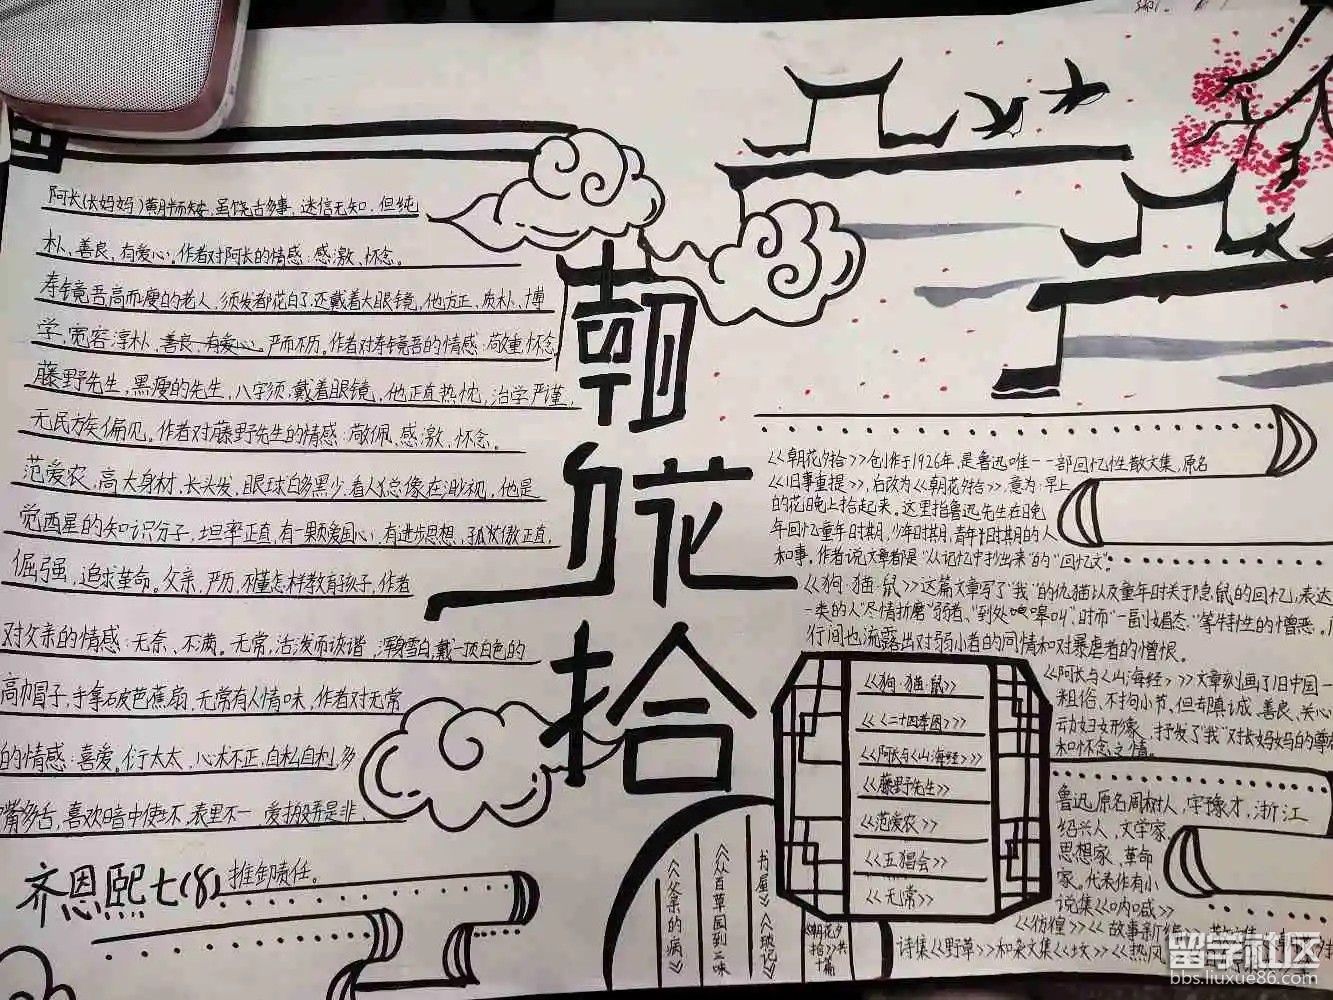 阿长(长妈妈)黄胖而矮,虽饶舌多事,迷信无知,但纯
朴、善良,有爱心。作者对阿长的情感:感激、怀念。
寿镜吾高而瘦的老人,须发都花白了,还戴着大眼镜,他方正,质朴、博
学,宽容淳朴、善良、有爱心,严而不厉。作者对寿镜吾的情感:敬重,怀念
藤野先生,黑瘦的先生,八字须,戴着眼镜,他正直热忱,治学严谨,
无民族偏见。作者对藤野先生的情感:敬佩、感激、怀念。
范爱农,高大身材,长头发,眼球白多黑少,看人总像在渺视,他是
觉醒的知识分子,坦率正直,有一颗爱国心,有进步思想,孤傲正直,
倔强,追求革命。父亲,严厉,不懂怎样教育孩子,作者
对父亲的情感:无奈、不满。无常,活泼而诙谐,浑身雪白,戴一顶白色的
高帽子,手拿破芭蕉扇,无常有人情味,作者对无常
的情感:喜爱。衍太太,心术不正,自私自利,多
嘴多舌,喜欢暗中使坏,表里不一,爱搬弄是非,
推卸责任。
齐恩熙七(8)
朝
花
夕
拾
《朝花夕拾》创作于1926年,是鲁迅唯一一部回忆性散文集,原名
《旧事重提》,后改为《朝花夕拾》,意为:早上
的花晚上拾起来。这里指鲁迅先生在晚
年回忆童年时期,少年时期,青年时期的人
和事。作者说文章都是“从记忆中抄出来”的“回忆文”。
《狗·猫·鼠》这篇文章写了“我”的仇猫以及童年时关于隐鼠的回忆,表达
一类的人“尽情折磨”弱者、“到处嗥叫”,时而“一副媚态”等特性的憎恶,
行间也流露出对弱小者的同情和对暴虐者的憎恨。
《阿长与《山海经》》文章刻画了旧中国一
粗俗、不拘小节,但却真诚、善良、关心
动妇女形象,抒发了“我”对长妈妈的尊
和怀念之情。
《狗·猫·鼠》
《《二十四孝图》》
《阿长与《山海经》》
《藤野先生》
《范爱农》
《五猖会》
《无常》
《父亲的病》
《从百草园到三味
书屋》《琐记》
《朝花夕
拾》共
十篇
鲁迅,原名周树人,字豫才,浙江
绍兴人,文学家
思想家、革命
家。代表作有小
说集《呐喊》
《彷徨》《故事新编》
诗集《野草》和杂文集《坟》《热风
留学社区
bbs.liuxue86.com